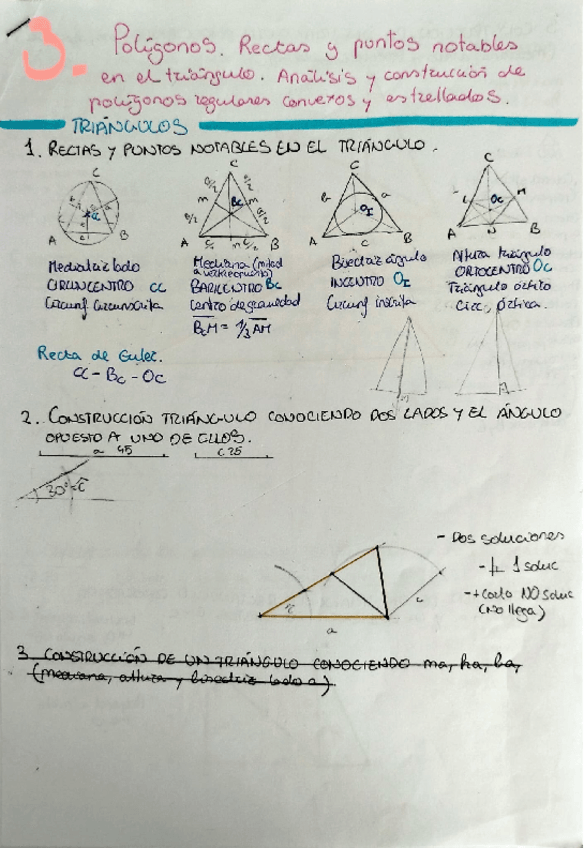 3. Polígonos. Rectas y puntos notables
en el triángulo. Análisis y construcción de
polígonos regulares convexos y estrellados.
TRIÁNGULOS
1. RECTAS Y PUNTOS NOTABLES EN EL TRIÁNGULO.
C C C C
Mediatriz lado
CIRCUNCENTRO CC
Circunf Circunscrita
A B
Mediana (mitad
a vértice opuesto)
BARICENTRO BC
Centro de gravedad
BcM = 1/3 AM
A B
Bisectriz ángulo
INCENTRO OI
Circunf inscrita
A B
Altura triángulo
ORTOCENTRO OC
Triángulo órtico
Circ. órtica.
A B
Recta de Euler.
CC - BC - OC
2. CONSTRUCCIÓN TRIÁNGULO CONOCIENDO DOS LADOS Y EL ÁNGULO
OPUESTO A UNO DE ELLOS.
a 45 c 25
30º
- Dos soluciones
1 soluc
- + corto NO soluc
(No llega)
c
a
3. CONSTRUCCIÓN DE UN TRIÁNGULO CONOCIENDO ma, ha, ba,
(mediana, altura y bisectriz lado a)